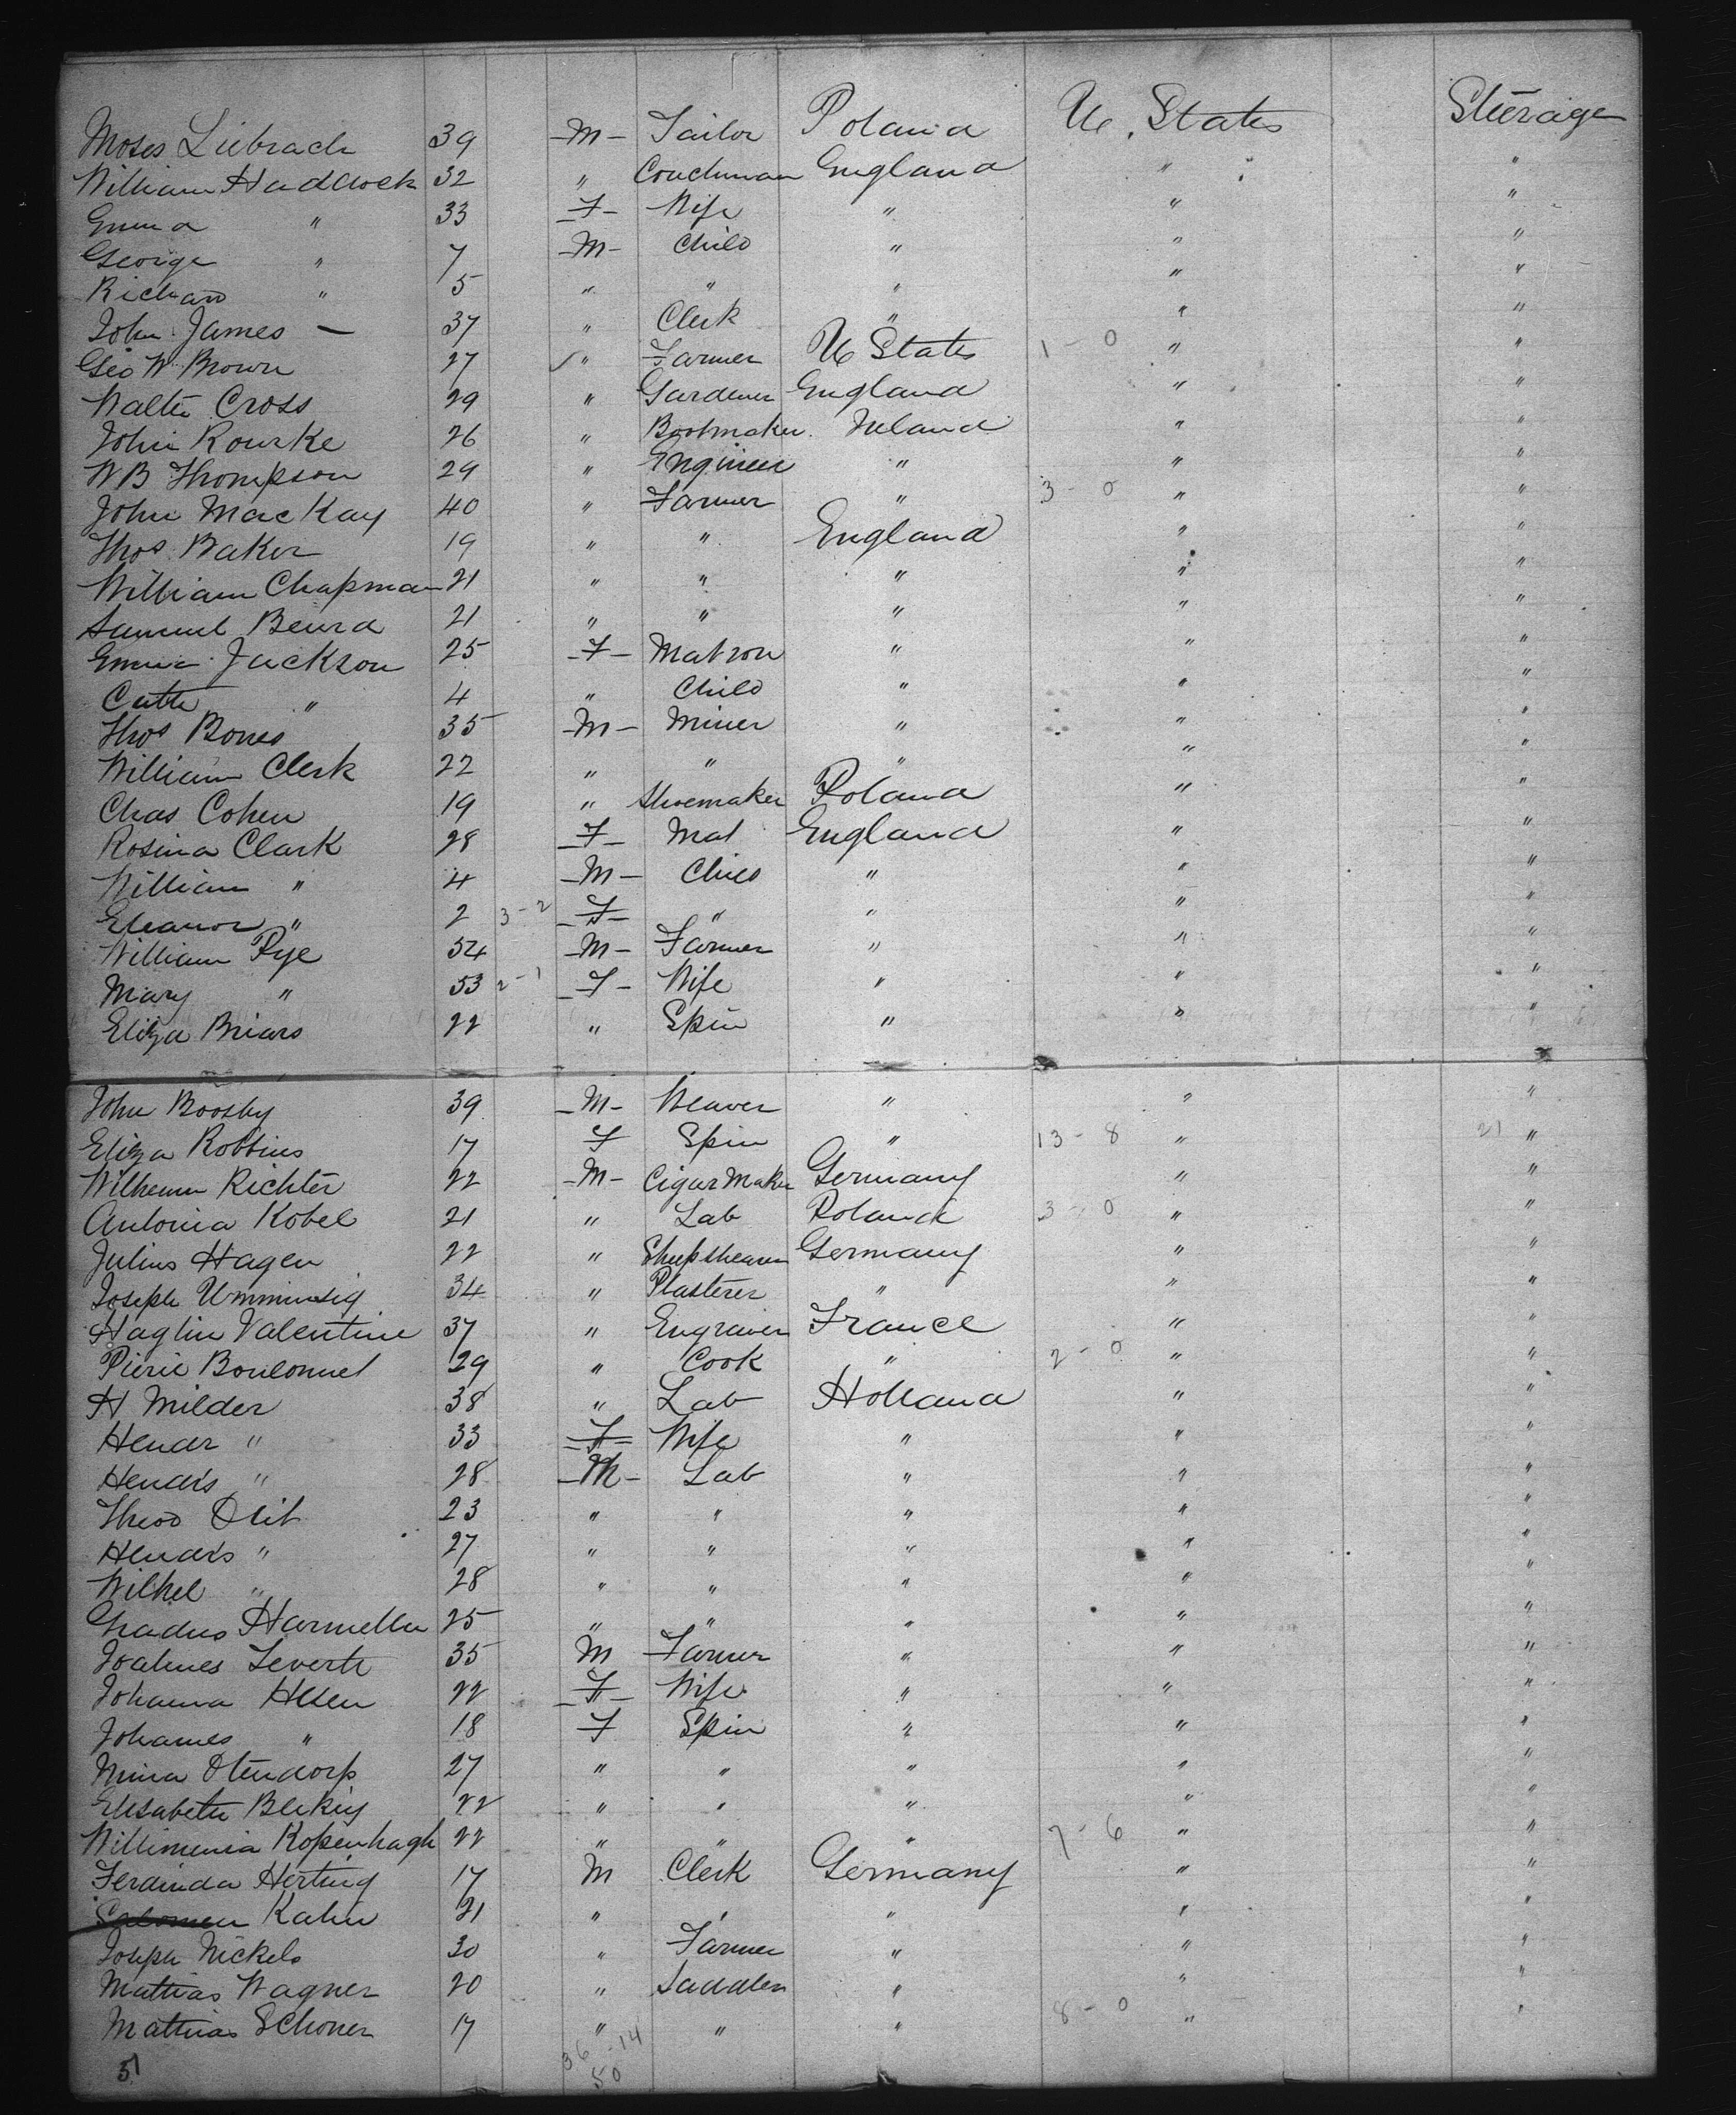 Moses Liebrach 39 -M- Tailor Poland U. States Steerage
William Haddock 32 " Coachman England " "
Emma " 33 -F- Wife " " "
George " 7 -M- Child " " "
Richard " 5 " " " " "
John James - 37 " Clerk " " "
Geo W Brown 27 " Farmer U States 1-0 " "
Walter Cross 29 " Gardener England " "
John Rourke 26 " Bootmaker Ireland " "
W B Thompson 29 " Engineer " " "
John MacKay 40 " Farmer " 3-0 " "
Thos Baker 19 " " England " "
William Chapman 21 " " " " "
Samuel Beard 21 " " " " "
Emma Jackson 25 -F- Matron " " "
Cath " 4 " Child " " "
Thos Bones 35 -M- Miner " " "
William Clerk 22 " " " " "
Chas Cohen 19 " Shoemaker Poland " "
Rosina Clark 28 -F- Mat England " "
William " 4 -M- Child " " "
Eleanor " 2 3-2 -F- " " " "
William Pye 54 -M- Farmer " " "
Mary " 53 2-1 -F- Wife " " "
Eliza Briars 22 " Spin " " "
John Boosby 39 -M- Weaver " " "
Eliza Robbins 17 F Spin " 13-8 " 21 "
Wilhelm Richter 22 -M- Cigar Maker Germany " "
Antonia Kobel 21 " Lab Poland 3-0 " "
Julius Hagen 22 " Sheepshearer Germany " "
Joseph Umminsig 34 " Plasterer " " "
Haglin Valentine 37 " Engraver France " "
Pierie Boulonnel 29 " Cook " 2-0 " "
H Milder 38 " Lab Holland " "
Hendr " 33 -F- Wife " " "
Hendks " 28 -M- Lab " " "
Theod 23 " " " " "
Hendks " 27 " " " " "
Wilhel " 28 " " " " "
Gradus Harmellen 25 " " " " "
Joahnes Leverte 35 M Farmer " " "
Johanna 22 -F- Wife " " "
Johannes " 18 F Spin " " "
Mina Otendorp 27 " " " " "
Elisabeth Bleking 22 " " " " "
Willimenia Kopenhagh 22 " " " 7-6 " "
Ferdinda Herting 17 M Clerk Germany " "
Salomen Kahn 21 " " " " "
Joseph Nickels 30 " Farmer " " "
Mattias Wagner 20 " Saddler " " "
Mathias Schoner 17 " " " 8-0 " "
51 36-14
50